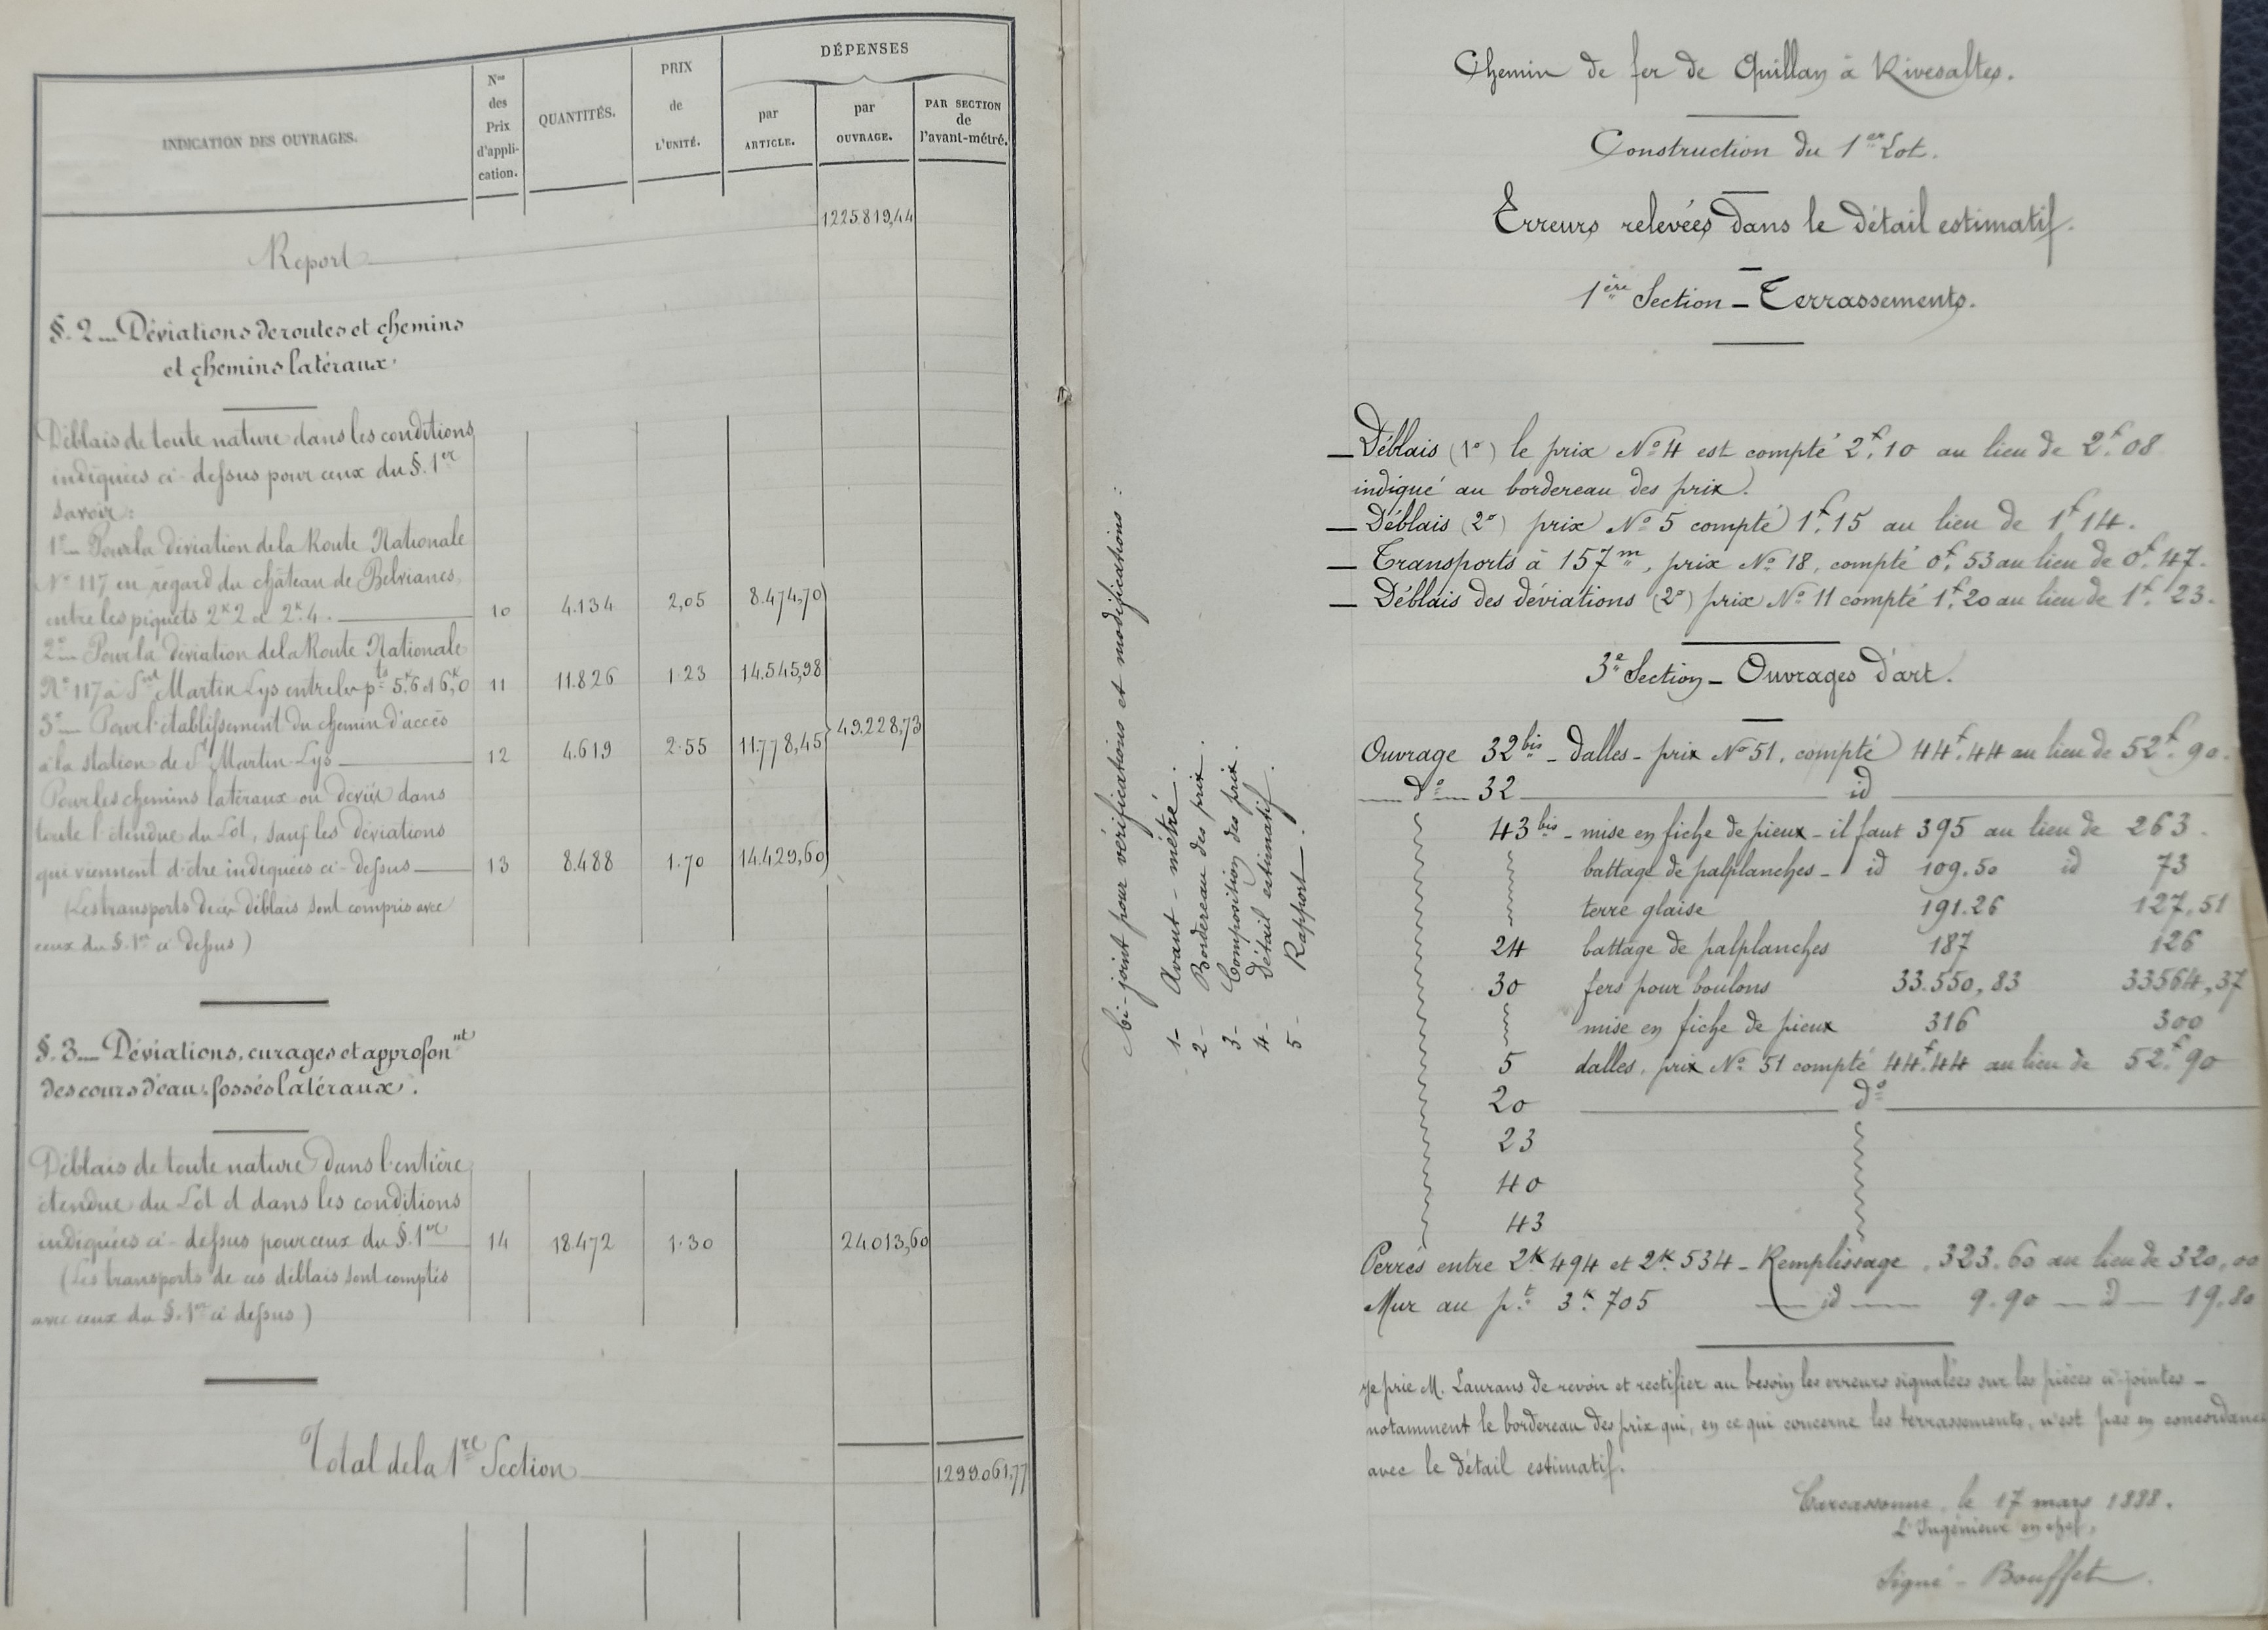 INDICATION DES OUVRAGES.
Nos
des
Prix
d'appli-
cation.
QUANTITÉS.
PRIX
de
L'UNITÉ.
DÉPENSES
par
ARTICLE.
par
OUVRAGE.
PAR SECTION
de
l'avant-métré.
Report 1225819,44
§. 2 _ Déviations de routes et chemins
et chemins latéraux.
Déblais de toute nature dans les conditions
indiquées ci-dessus pour ceux du §. 1er
savoir:
1° _ Pour la déviation de la Route Nationale
N° 117 en regard du château de Belvianes,
entre les piquets 2k2 et 2k.4. 10 4.134 2,05 8.474,70
2° _ Pour la déviation de la Route Nationale
N° 117 à St Martin Lys entre les pts 5k.6 et 6k,0 11 11.826 1.23 14.545,98
3° _ Pour l'établissement du chemin d'accès
à la station de St Martin-Lys 12 4.619 2.55 11.778,45 49.228,73
Pour les chemins latéraux ou déviés dans
toute l'étendue du Lot, sauf les déviations
qui viennent d'être indiquées ci-dessus 13 8.488 1.70 14.429,60
(Les transports de ces déblais sont compris avec
ceux du §. 1er ci dessus)
§. 3 _ Déviations, curages et approfonnt
des cours d'eau & fossés latéraux.
Déblais de toute nature dans l'entière
étendue du Lot et dans les conditions
indiquées ci-dessus pour ceux du §. 1er 14 18.472 1.30 24013,60
(Les transports de ces déblais sont comptés
avec ceux du §. 1er ci dessus)
Total de la 1re Section 1.299.061,77
Ci-joint pour vérifications et modifications :
1- Avant-métré.
2- Bordereau des prix.
3- Composition des prix.
4- Détail estimatif.
5- Rapport.
Chemin de fer de Quillan à Rivesaltes.
Construction du 1er Lot.
Erreurs relevées dans le Détail estimatif.
1ère Section _ Terrassements.
_ Déblais (1°) le prix N° 4 est compté 2f.10 au lieu de 2f.08
indiqué au bordereau des prix.
_ Déblais (2°) prix N° 5 compté 1f.15 au lieu de 1f14.
_ Transports à 157m, prix N° 18, compté 0f.53 au lieu de 0f.47.
_ Déblais des déviations (2°) prix N° 11 compté 1f.20 au lieu de 1f.23.
3e Section _ Ouvrages d'art.
Ouvrage 32bis _ dalles _ prix N° 51, compté 44f.44 au lieu de 52f.90.
d° 32 id
43bis _ mise en fiche de pieux _ il faut 395 au lieu de 263.
battage de palplanches _ id 109.50 id 73
terre glaise 191.26 127,51
24 battage de palplanches 187 126
30 fers pour boulons 33.550,83 33564,37
mise en fiche de pieux 316 300
5 dalles, prix N° 51 compté 44f.44 au lieu de 52f.90
20 d°
23
40
43
Perrés entre 2k494 et 2k.534 _ Remplissage, 323.60 au lieu de 320,00
Mur au pt 3k.705 id 9.90 _ d _ 19.80
Je prie M. Laurans de revoir et rectifier au besoin les erreurs signalées sur les pièces ci-jointes _
notamment le bordereau des prix qui, en ce qui concerne les terrassements, n'est pas en concordance
avec le détail estimatif.
Carcassonne, le 17 mars 1888.
L'Ingénieur en chef,
Signé - Bouffet.